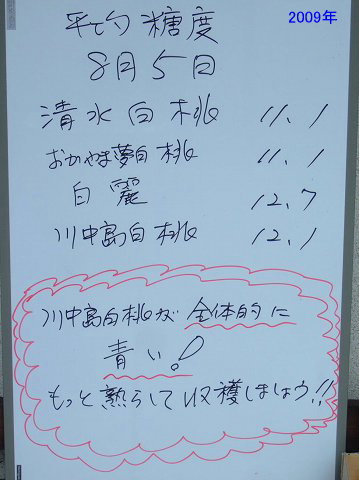 2009年
平均糖度
8月5日
清水白桃 11.1
おかやま夢白桃 11.1
白麗 12.7
川中島白桃 12.1
川中島白桃が全体的に
青い!
もっと熟らして収穫しましょう!!